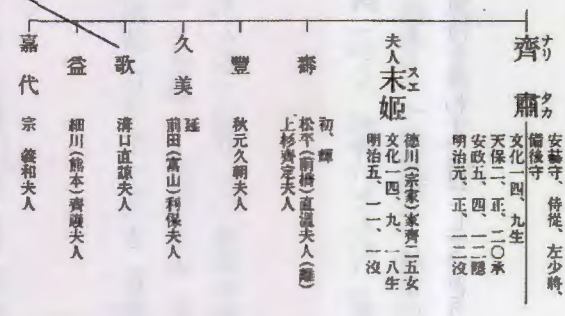 齊 ナリ
肅 タカ
安藝守、侍從、左少將、
備後守
文化一四、九生
天保二、正、二〇承
安政五、四、一二隱
明治元、正、一二沒
夫人 末姬 スエ
德川(宗家)家齊二五女
文化一四、九、一八生
明治五、一一、一沒
壽
初、輝
松平(前橋)直溫夫人(離)
上杉齊定夫人
豐
秋元久朝夫人
久美
延
前田(富山)利保夫人
歌
溝口直諒夫人
益
細川(熊本)齊護夫人
嘉代
宗 義和夫人